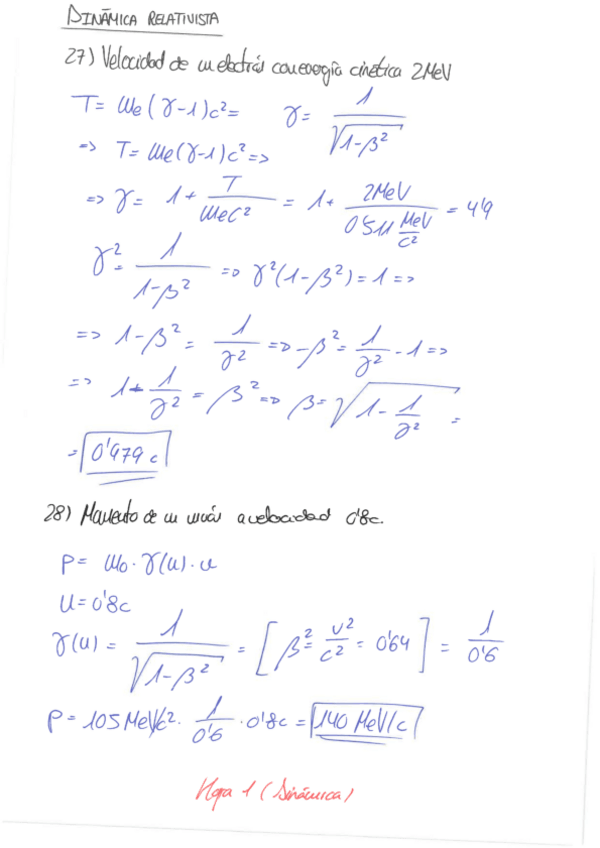 DINÁMICA RELATIVISTA
27) Velocidad de un electrón con energía cinética 2MeV
T = me(γ-1)c² = γ = 1/√(1-β²)
=> T = me(γ-1)c² =>
=> γ = 1 + T/(mec²) = 1 + 2MeV/(0'511 MeV/c²) = 4'9
γ² = 1/(1-β²) => γ²(1-β²) = 1 =>
=> 1-β² = 1/γ² => -β² = 1/γ² - 1 =>
=> 1 - 1/γ² = β² => β = √(1 - 1/γ²) =
= 0'979 c
28) Momento de un muón a velocidad 0'8c.
P = m₀·γ(u)·u
U = 0'8c
γ(u) = 1/√(1-β²) = [β² = v²/c² = 0'64] = 1/0'6
P = 105 MeV/c² · 1/0'6 · 0'8c = 140 MeV/c
Hoja 1 (Dinámica)